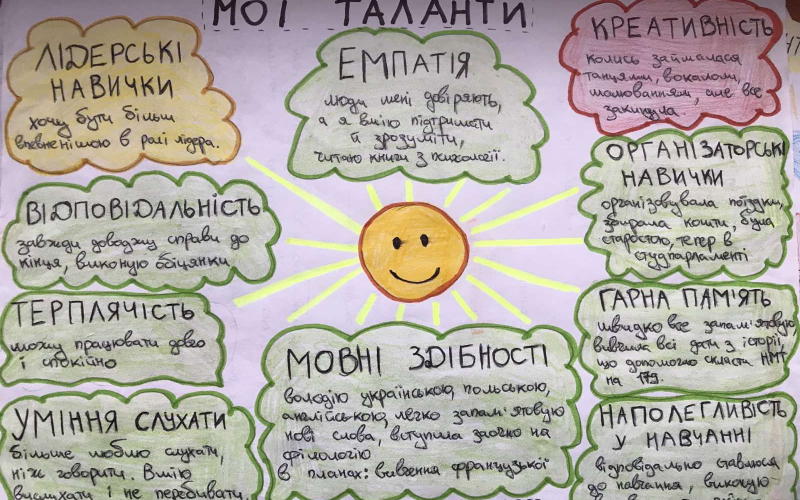 МОЇ ТАЛАНТИ
ЛІДЕРСЬКІ
НАВИЧКИ
хочу бути більш
впевненішою в ролі лідера.
ЕМПАТІЯ
люди мені довіряють,
а я вмію підтримати
й зрозуміти,
читаю книги з психології.
КРЕАТИВНІСТЬ
колись займалася
танцями, вокалом,
малюванням, але все
закинула.
ВІДПОВІДАЛЬНІСТЬ
завжди доводжу справи до
кінця, виконую обіцянки
ОРГАНІЗАТОРСЬКІ
НАВИЧКИ
організовувала поїздки,
збирала кошти, була
старостою, тепер в
студпарламенті
ТЕРПЛЯЧІСТЬ
можу працювати довго
і спокійно
МОВНІ ЗДІБНОСТІ
володію українською, польською,
англійською, легко запам'ятовую
нові слова, вступила заочно на
філологію
в планах: вивчення французької
ГАРНА ПАМ'ЯТЬ
швидко все запам'ятовую
вивчила всі дати з історії,
що допомогло скласти НМТ
на 179.
УМІННЯ СЛУХАТИ
більше люблю слухати,
ніж говорити. Вмію
вислухати і не перебивати.
НАПОЛЕГЛИВІСТЬ
У НАВЧАННІ
відповідально ставлюся
до навчання, виконую